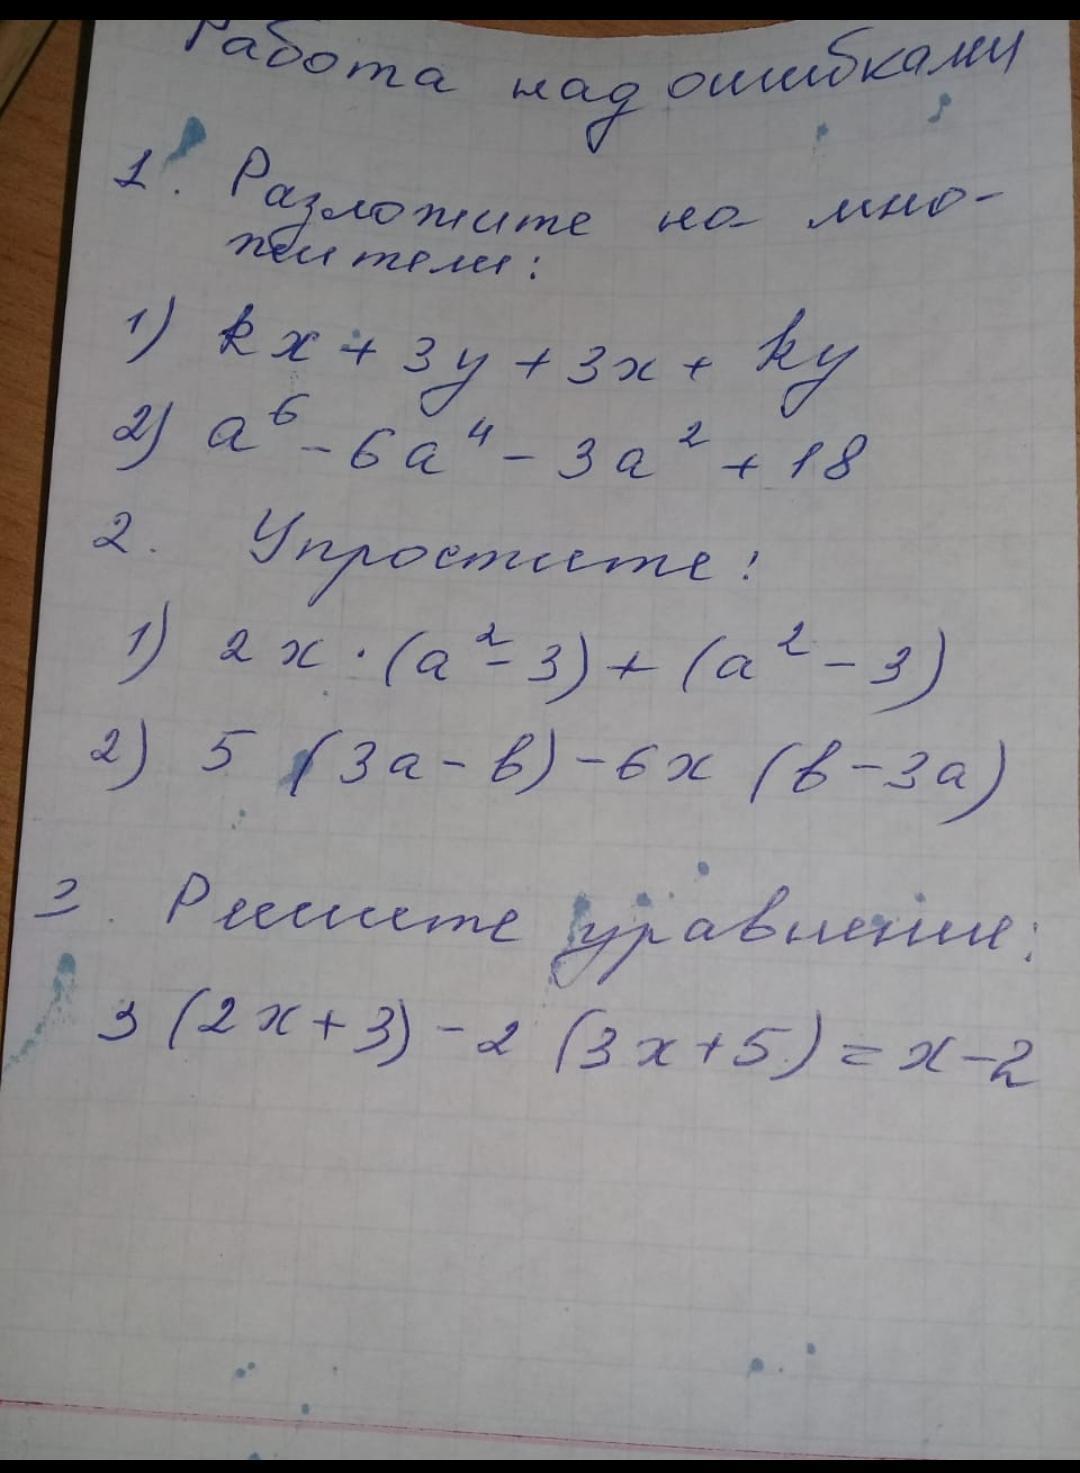 Работа над ошибками
1. Разложите на мно-
жители:
1) kx + 3y + 3x + ky
2) a⁶ - 6a⁴ - 3a² + 18
2. Упростите:
1) 2x · (a² - 3) + (a² - 3)
2) 5 (3a - b) - 6x (b - 3a)
3. Решите уравнение:
3 (2x + 3) - 2 (3x + 5) = x - 2